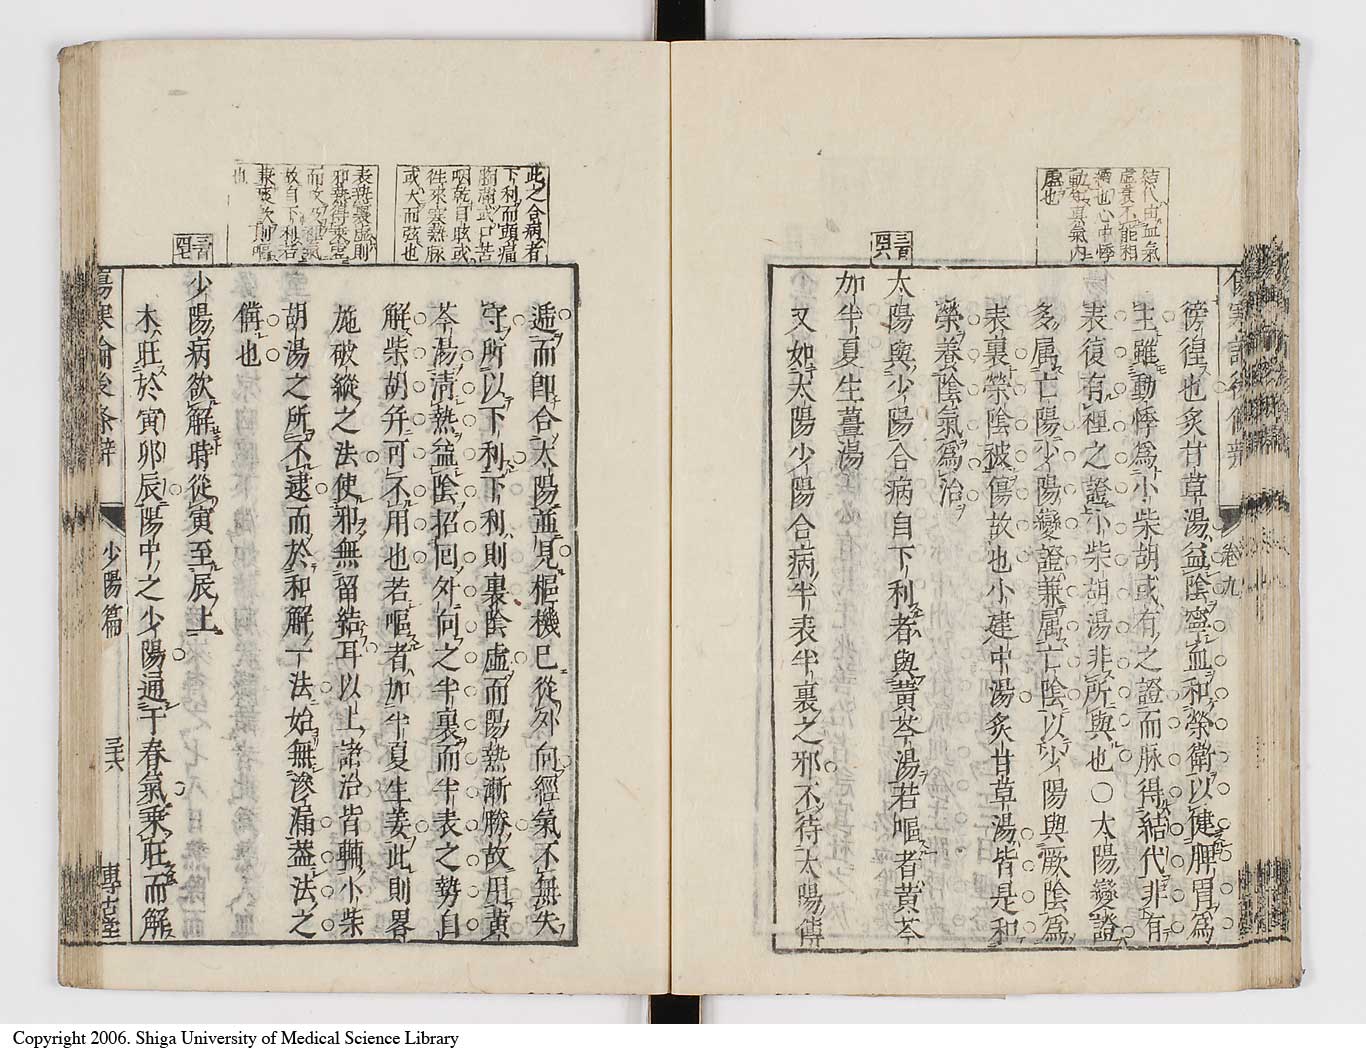 結代由血氣
虛衰不能相
續也心中悸
動者真氣內
虛也
徬徨也炙甘草湯益陰寧血和榮衛以健脾胃爲
主雖動悸爲小柴胡或有之證而脉得結代非有
表復有裡之證小柴胡湯非所與也○太陽變證
多属亡陽少陽變證兼属亡陰以少陽與厥陰爲
表裏榮陰被傷故也小建中湯炙甘草湯皆是和
榮養陰氣爲治
太陽與少陽合病自下利者與黃芩湯若嘔者黃芩
加半夏生薑湯
又如太陽少陽合病半表半裏之邪不待太陽傳
卷九
此之合病者
下利而頭痛
胸滿或口苦
咽乾目眩或
徃來寒熱脉
或大而弦也
表無裏虛則
邪熱得乘虛
故自下利若
也
遞而卽合太陽並見樞機已從外向經氣不無失
守所以下利下利則裏陰虛而陽熱漸勝故用黃
芩湯清熱益陰招回外向之半裏而半表之勢自
解柴胡并可不用也若嘔者加半夏生姜此則畧
施破縱之法使邪無留結耳以上諸治皆輔小柴
胡湯之所不逮而於和解一法始無滲漏葢法之
備也
少陽病欲解時從寅至辰上
木旺於寅卯辰陽中之少陽通于春氣乘旺而解
傷寒論後条辯
少陽篇
三六
專古堂
Copyright 2006. Shiga University of Medical Science Library